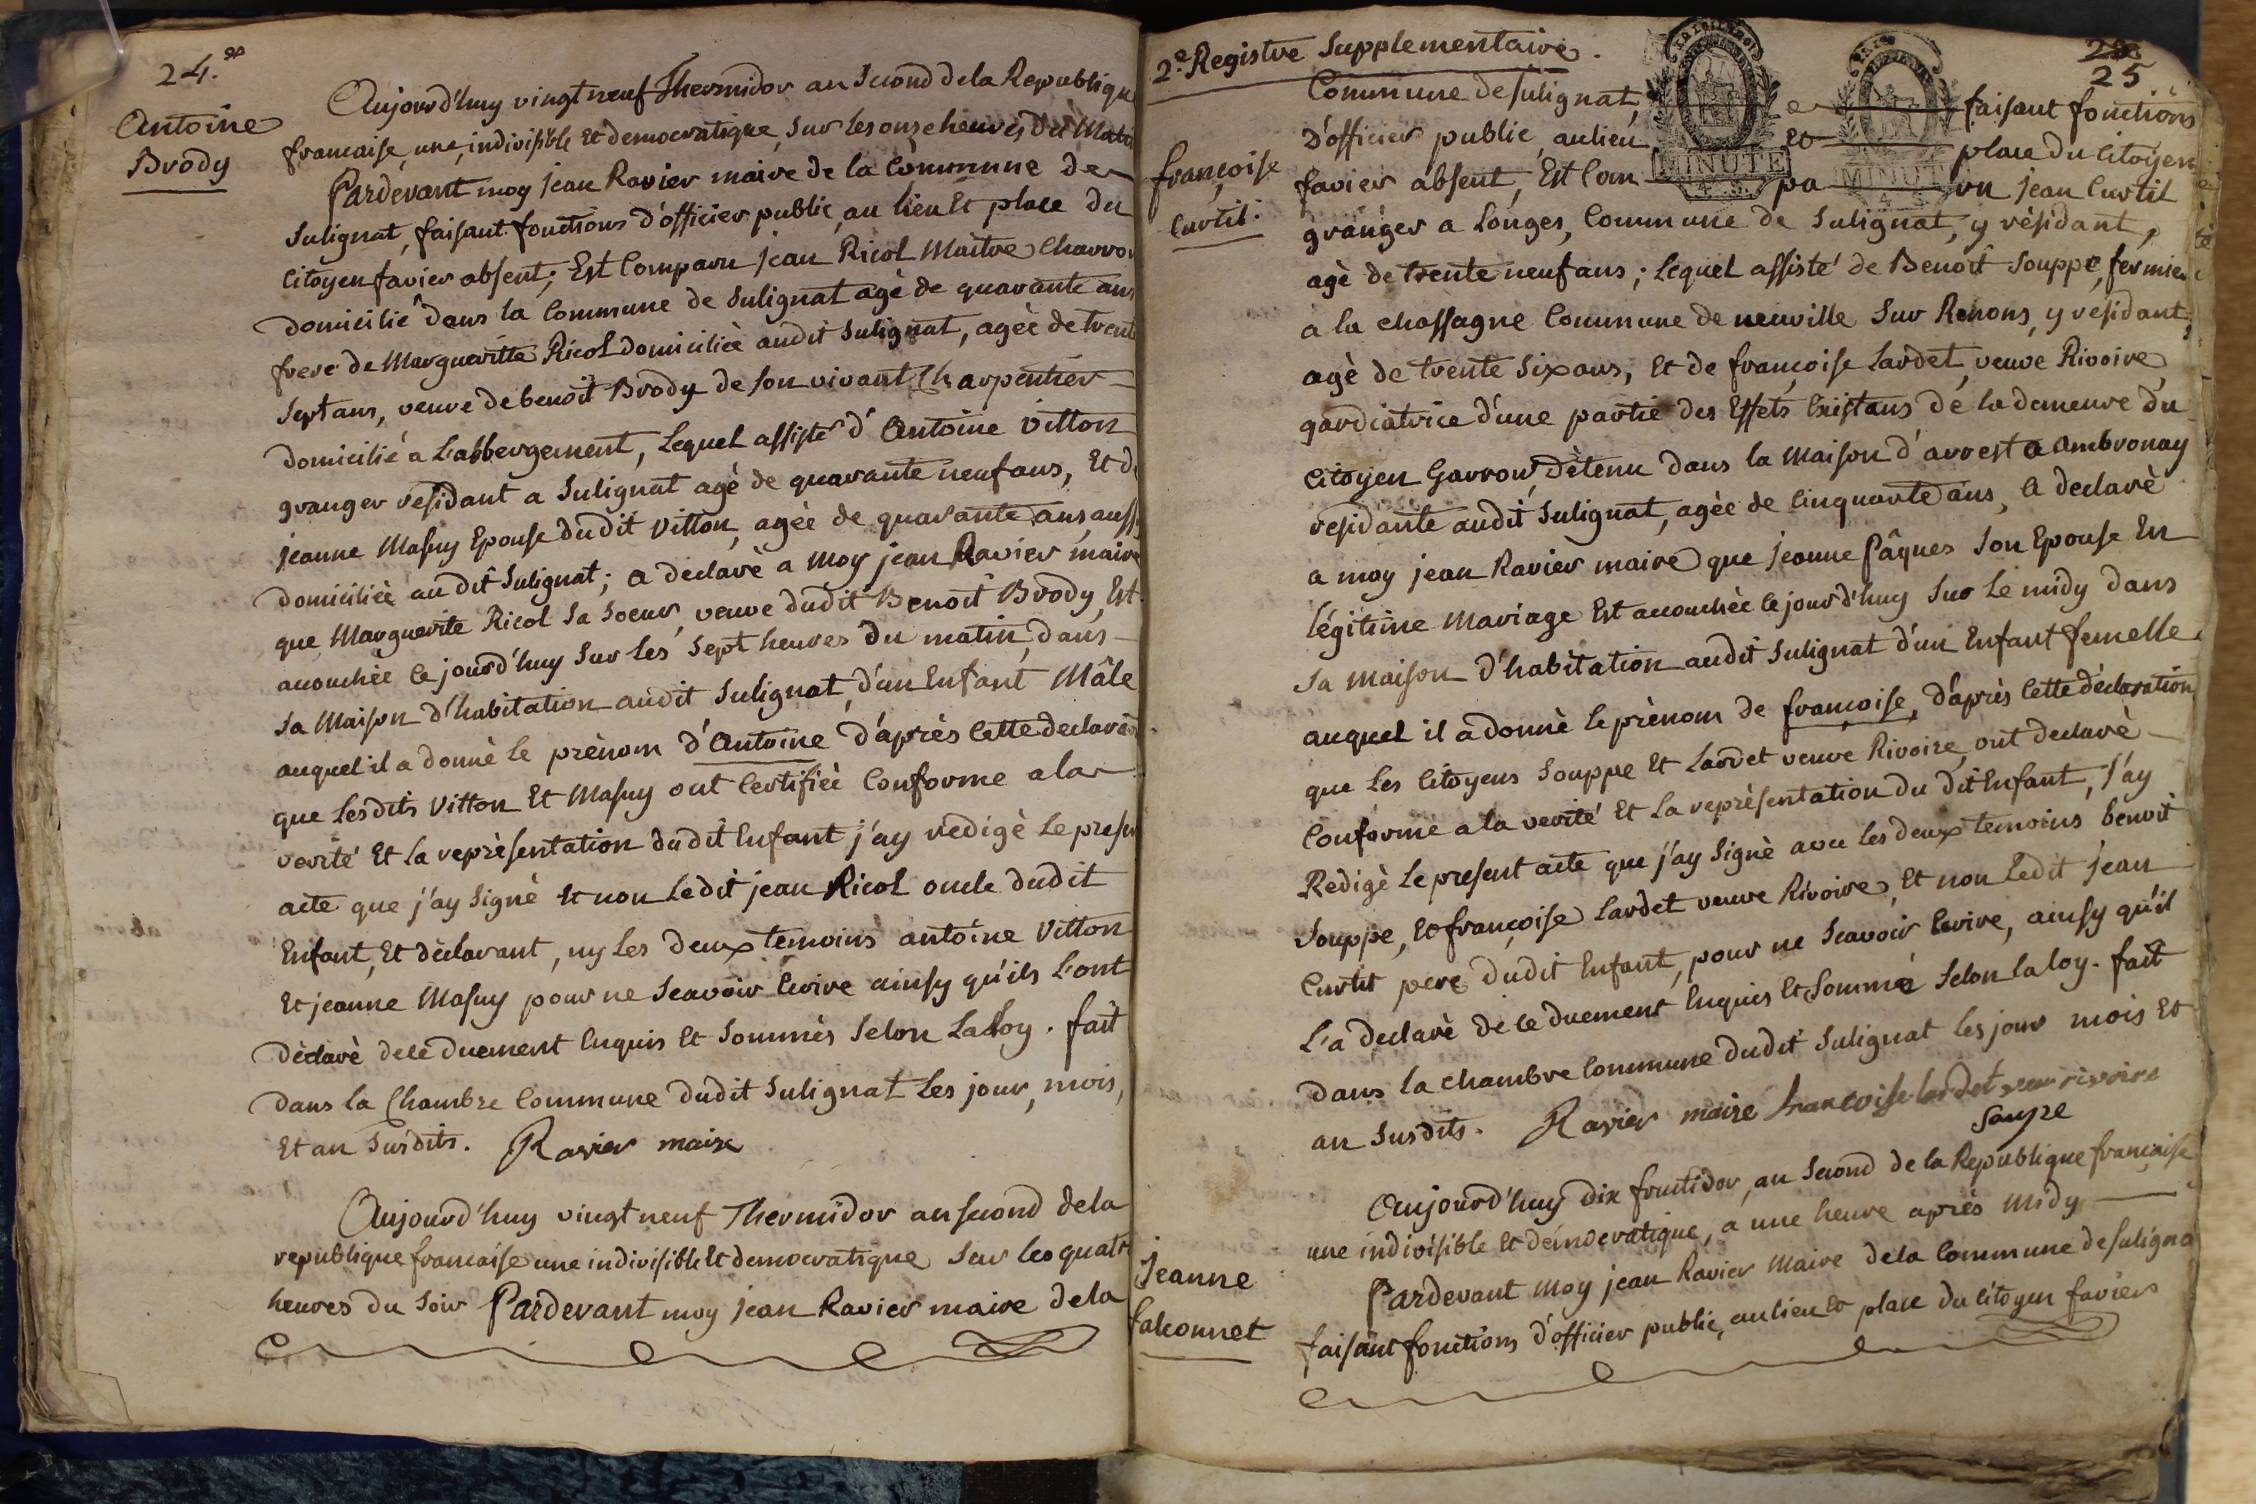 24.
Antoine
Brody
Aujourd'huy vingt neuf Thermidor an Second de la Republique
francaise, une, indivisible et democratique, Sur les onze heures du Matin
Pardevant moy jean Ravier maire de la Commune de
Sulignat, faisant fonctions d'officier public, au lieu Et place du
Citoyen favier absent; Est Comparu jean Ricol Maitre Charron
domicilié dans la Commune de Sulignat agè de quarante ans
frere de Marguerite Ricol domiciliée audit Sulignat, agèe de trente
Sept ans, veuve de benoit Brody de son vivant Charpentier
domicilié a L'abbergement, Lequel assisté d'Antoine vitton
granger residant a Sulignat agè de quarante neuf ans, Et de
jeanne Masuy Epouse dudit vitton, agèe de quarante ans, aussi
domiciliée au dit Sulignat; a declarè a moy jean Ravier maire
que Marguerite Ricol Sa Soeur, veuve dudit Benoit Brody, Est
acouchèe Cejourd'huy Sur les Sept heures du matin, dans
Sa Maison d'habitation audit Sulignat, d'un Enfant Mâle
auquel il a donnè le prènom d'Antoine d'après Cette declaration
que Lesdits Vitton Et Masuy ont Certifiée Conforme a la
verité Et la reprèsentation dudit Enfant j'ay redigè Le present
acte que j'ay Signè Et non Ledit jean Ricol oncle dudit
Enfant, Et dèclarant, ny Les deux temoins antoine Vitton
Et jeanne Masuy pour ne Scavoir Ecrire ainsy qu'ils L'ont
dèclarè de ce duement Enquis Et Sommès Selon La Loy. fait
dans la Chambre Commune dudit Sulignat Les jour, mois,
Et an Susdits. Ravier maire
Aujourd'huy vingt neuf Thermidor an Second de la
republique francaise une indivisible Et democratique Sur les quatre
heures du Soir Pardevant moy jean Ravier maire de la
2e. Registre Supplementaire.
25
Commune de Sulignat, faisant fonctions
D'officier public, au lieu Et place du Citoyen
favier absent, Est Com paru jean Curtil
françoise
Curtil.
granger a Longes, Commune de Sulignat, y résidant,
agè de trente neuf ans; Lequel assisté de Benoit Souppe, fermier
a la chassagne Commune de neuville Sur Renons, y résidant,
agè de trente Six ans, Et de françoise Lardet, veuve Rivoire,
gardiatrice d'une partie des Effets Existans de la demeure du
Citoyen Garron, Dètenu dans la Maison d'arrest a Ambronay
residante audit Sulignat, agèe de Cinquante ans, a declarè
a moy jean Ravier maire que jeanne Pâques Son Epouse En
légitime Mariage Est acouchèe Cejourd'huy Sur Le midy dans
Sa maison d'habitation audit Sulignat d'un Enfant femelle
auquel il a donnè le prènom de françoise, d'après Cette dèclaration
que Les Citoyens Souppe Et Lardet veuve Rivoire, ont declarè
Conforme a la verité Et la reprèsentation du dit Enfant, j'ay
Redigè Le present acte que j'ay Signè avec les deux temoins benoit
Souppe, Et françoise Lardet veuve Rivoire, Et non Ledit jean
Curtil pere dudit Enfant, pour ne Scavoir Ecrire, ainsy qu'il
L'a declarè de ce duement Enquis Et Sommé Selon la loy. fait
dans la chambre Commune dudit Sulignat les jour mois Et
an Susdits. Ravier maire francoise lardet veuve rivoire
Soupe
Aujourd'huy dix fructidor, an Second de la Republique francaise
une indivisible Et democratique, a une heure après midy
Pardevant moy jean Ravier Maire de la Commune de Sulignat
jeanne
falconnet
faisant fonctions d'officier public, au lieu Et place du Citoyen favier
MINUTE
MINUTE